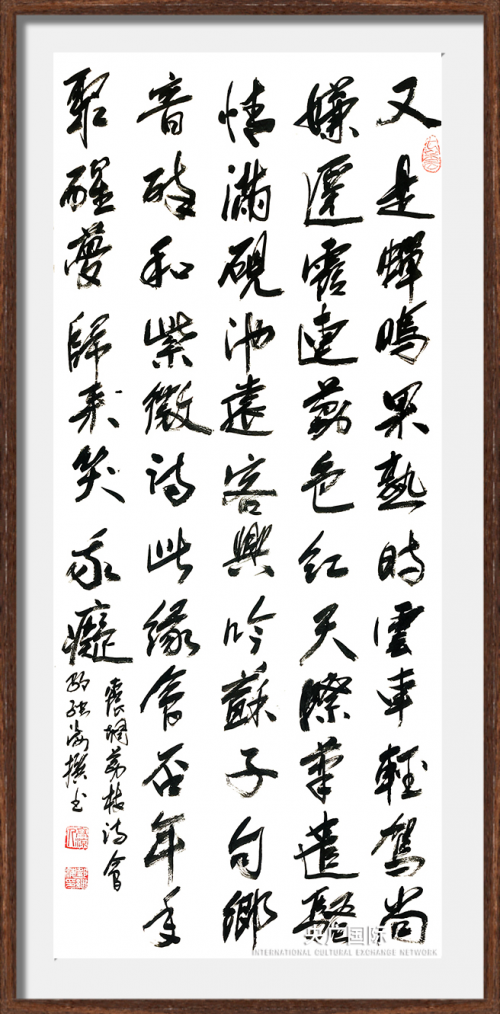 又是蟬鳴果熟時雲車輕駕尚
嫌遲霞連荔色紅天際筆遣騷
情滿硯池遠客興吟蘇子句鄉
音和紫微詩此緣會否年年
聚醒夢歸來笑我癡
荔枝詩會
撰书
国际
INTERNATIONAL CULTURAL EXCHANGE NETWORK